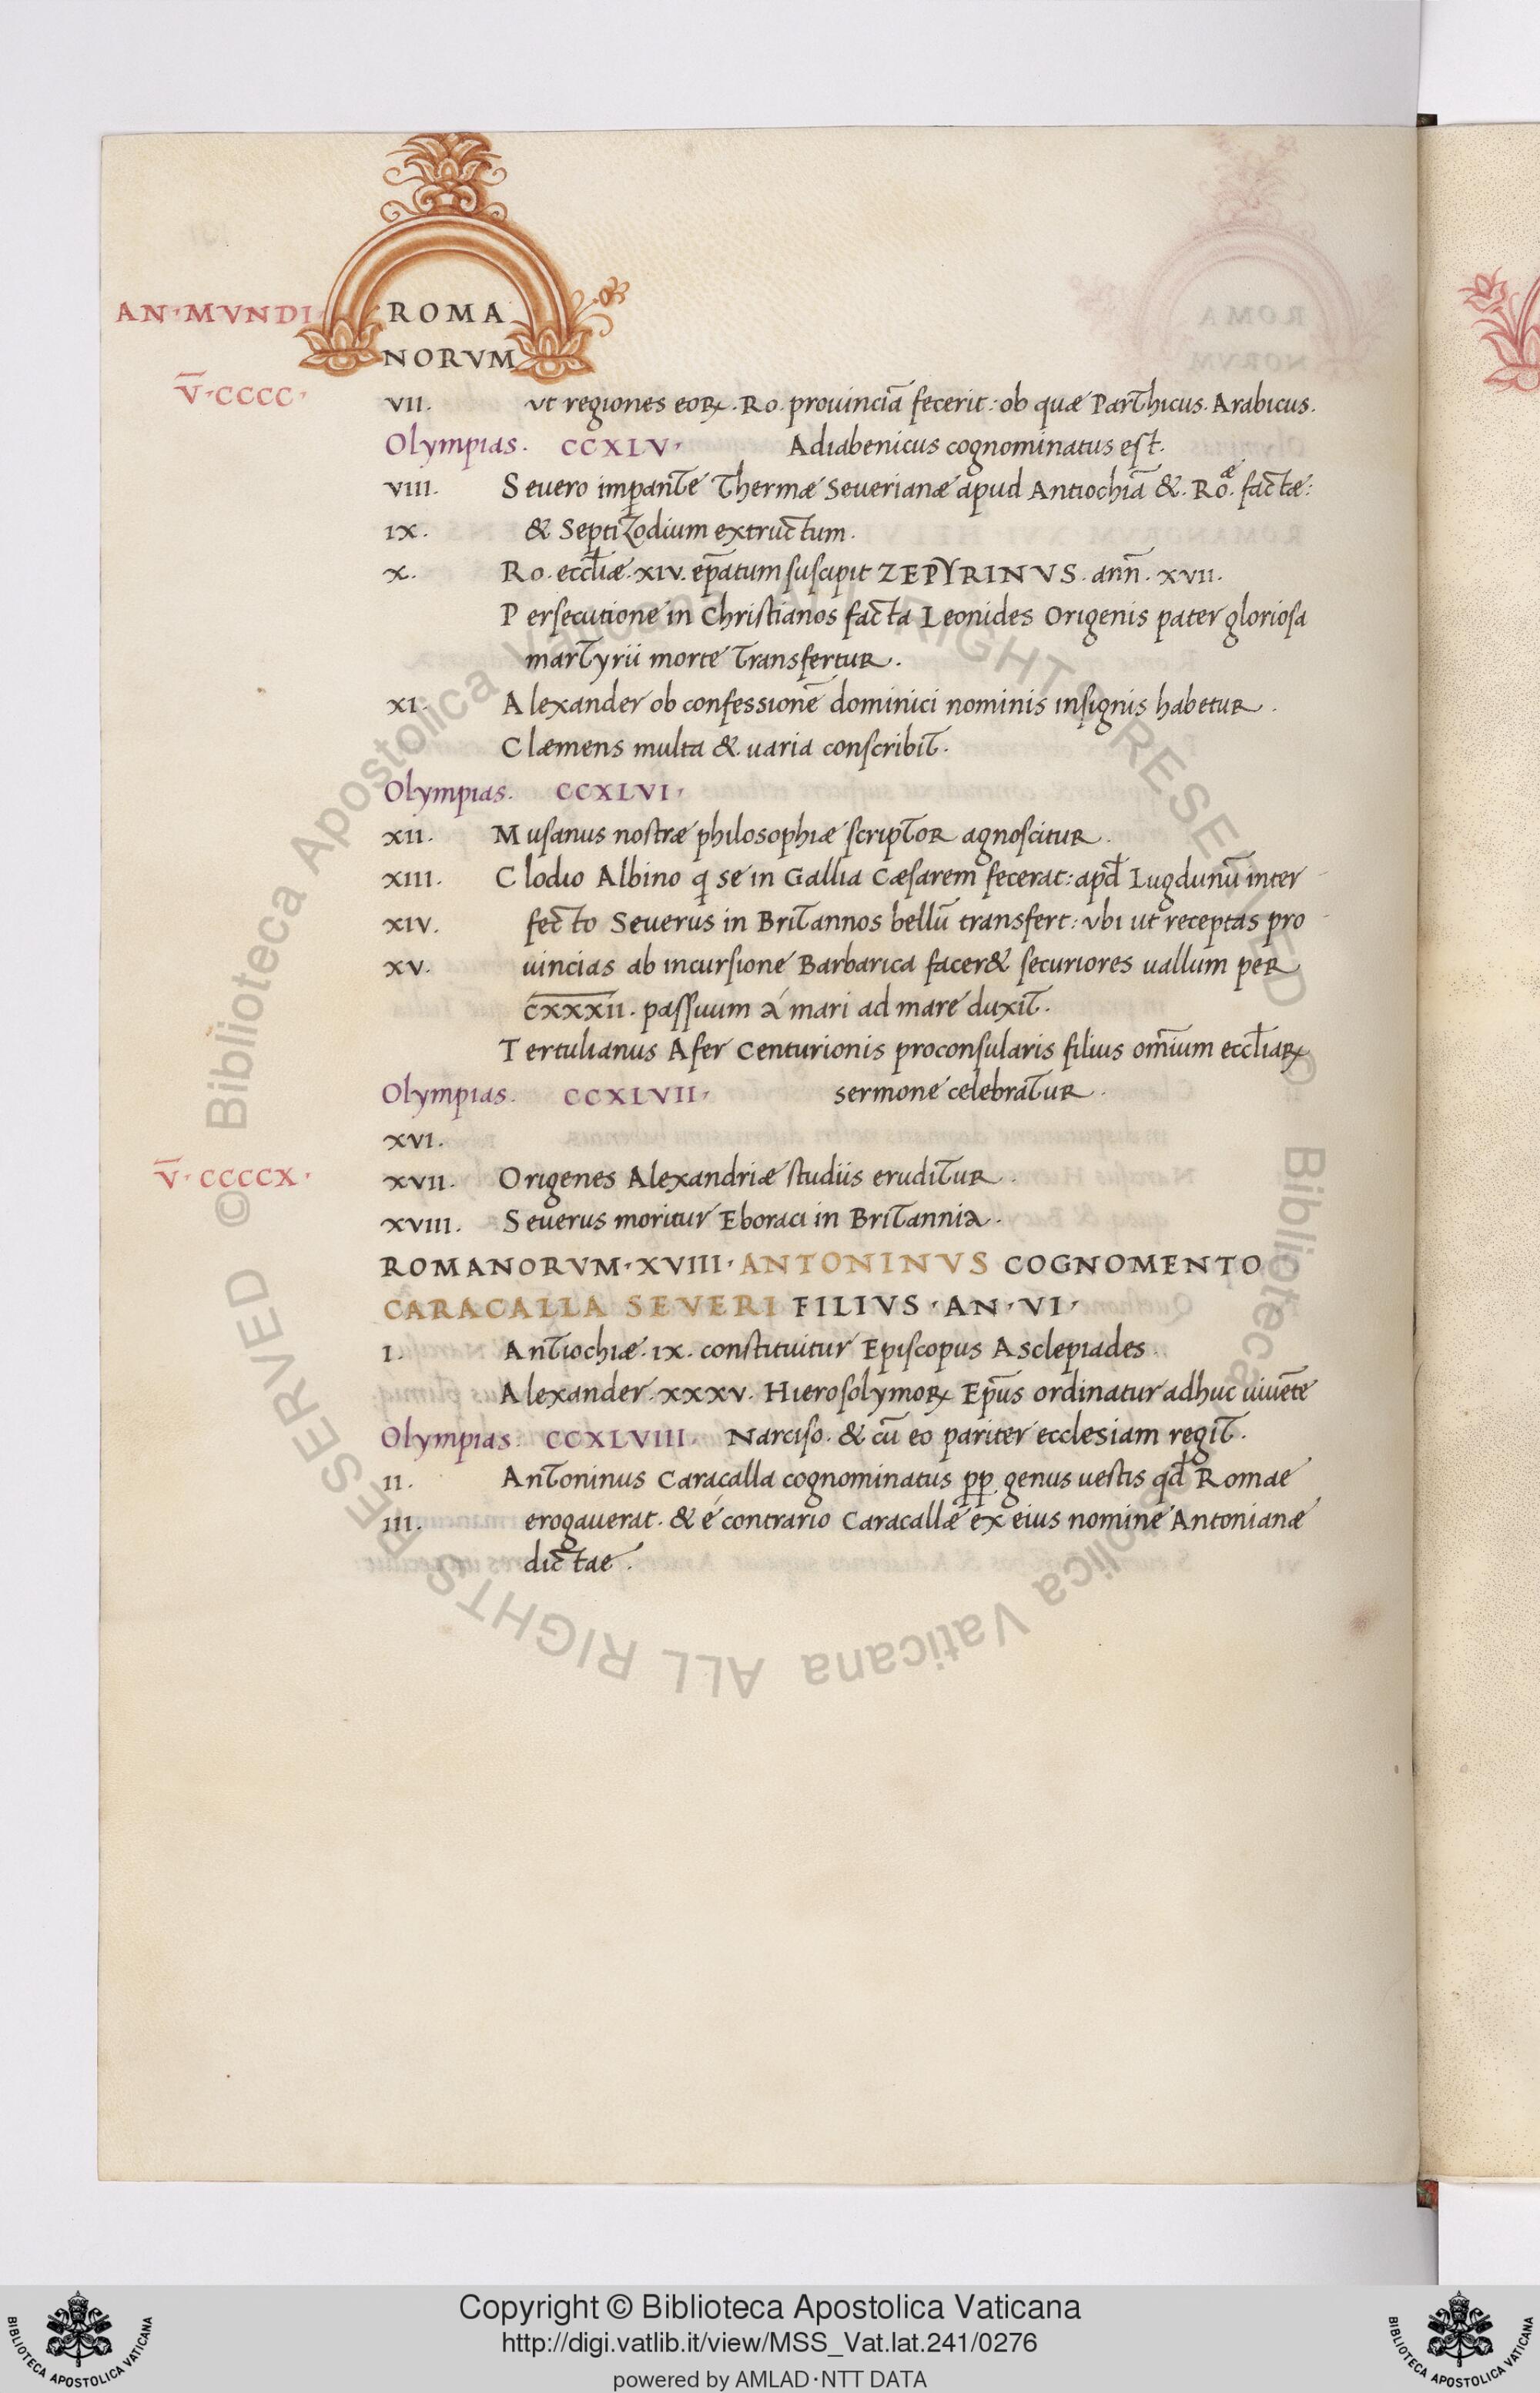 AN·MVNDI·
ROMA
NORVM
V̅·CCCC·
VII. vt regiones eoꝝ. Ro. prouinciā fecerit: ob quæ Parthicus. Arabicus.
Olympias. CCXLV· Adiabenicus cognominatus est.
VIII. Seuero imꝑante Thermæ Seuerianæ apud Antiochiā &. Ro.æ factæ:
IX. & Septizodium extructum.
X. Ro. eccl̄iæ. XIV. ep̄atum suscipit ZEPYRINVS. ann̄. XVII.
Persecutione in Christianos facta Leonides Origenis pater gloriosa
martyrii morte transfertur.
XI. Alexander ob confessionē dominici nominis insignis habetur.
Clæmens multa &. uaria conscribit.
Olympias. CCXLVI·
XII. Musanus nostræ philosophiæ scriptor agnoscitur.
XIII. Clodio Albino q se in Gallia Cæsarem fecerat: apd̄ Lugdunū inter
XIV. fecto Seuerus in Britannos bellū transfert: vbi ut receptas pro
XV. uincias ab incursione Barbarica facer& securiores uallum per
C̅X̅X̅X̅I̅I̅. passuum á mari ad mare duxit.
Tertulianus Afer Centurionis proconsularis filius omīum eccl̄iaꝝ
Olympias. CCXLVII· sermone celebratur.
XVI.
V̅·CCCCX·
XVII. Origenes Alexandriæ studiis eruditur.
XVIII. Seuerus moritur Eboraci in Britannia.
ROMANORVM·XVIII·ANTONINVS COGNOMENTO
CARACALLA SEVERI FILIVS·AN·VI·
I. Antiochiæ. IX. constituitur Episcopus Asclepiades.
Alexander. XXXV. Hierosolymoꝝ Ep̄us ordinatur adhuc uiuēte
Olympias. CCXLVIII. Narciso. & cū eo pariter ecclesiam regit.
II. Antoninus Caracalla cognominatus ꝑp genus uestis qd̄ Romae
III. erogauerat. & é contrario Caracallæ ex eius nomine Antonianæ
dictae.
© Biblioteca Apostolica Vaticana ALL RIGHTS RESERVED
© Biblioteca Apostolica Vaticana ALL RIGHTS RESERVED
Copyright © Biblioteca Apostolica Vaticana
http://digi.vatlib.it/view/MSS_Vat.lat.241/0276
powered by AMLAD·NTT DATA
BIBLIOTECA APOSTOLICA VATICANA
BIBLIOTECA APOSTOLICA VATICANA